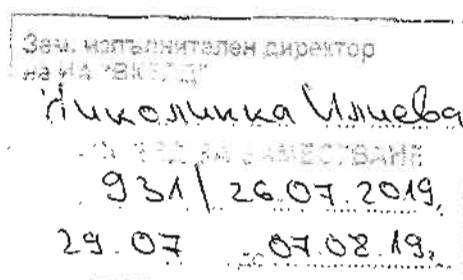 Зам. изпълнителен директор
на ИА
Николинка Илиева
ЗАМЕСТВАНЕ
931/26.07.2019,
29.07 до 07.08.19г.